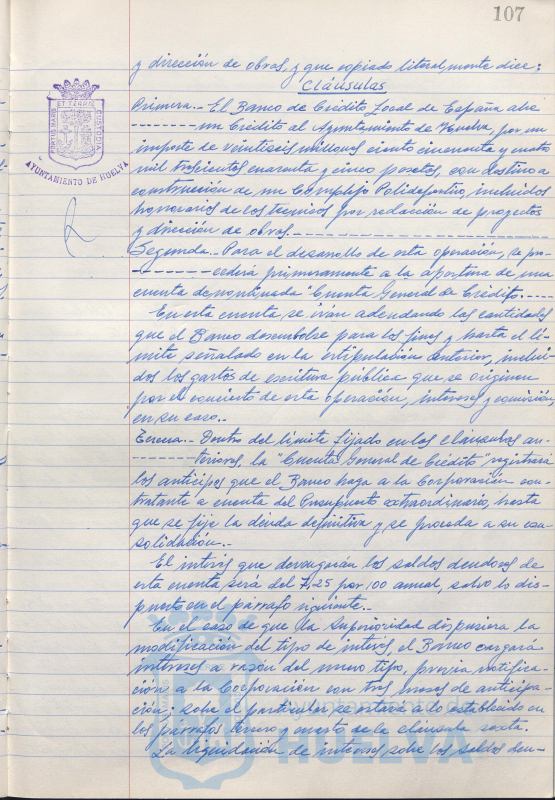 107
y dirección de obras, y que copiado literalmente dice:
Cláusulas
PORTUS MARIS ET TERRE CUSTODIA
AYUNTAMIENTO DE HUELVA
Primera.- El Banco de Crédito Local de España abre
un Crédito al Ayuntamiento de Huelva, por un
importe de veintiseis millones ciento cincuenta y cuatro
mil trescientas cuarenta y cinco pesetas, con destino a
construcción de un Complejo Polideportivo, incluidos
honorarios de los tecnicos por redacción de proyectos
y dirección de obras.-
Segunda.- Para el desarrollo de esta operación, se pro-
cederá primeramente a la apertura de una
cuenta denominada "Cuenta General de Crédito.-
En esta cuenta se irán adeudando las cantidades
que el Banco desembolse para los fines y hasta el lí-
mite señalado en la estipulación anterior, inclui-
dos los gastos de escritura pública que se originen
por el concierto de esta operación, intereses y comisión,
en su caso.-
Tercera.- Dentro del límite fijado en las cláusulas an-
teriores, la "Cuenta General de Crédito" registrará
los anticipos que el Banco haga a la Corporación con-
tratante a cuenta del Presupuesto extraordinario, hasta
que se fije la deuda definitiva y se proceda a su con-
solidación.-
El interés que devengarán los saldos deudores de
esta cuenta, será del 7,25 por 100 anual, salvo lo dis-
puesto en el párrafo siguiente.-
En el caso de que la Superioridad dispusiera la
modificación del tipo de interés, el Banco cargará
intereses a razón del nuevo tipo, previa notifica-
ción a la Corporación con tres meses de anticipa-
ción; sobre el particular se estará a lo establecido en
los párrafos tercero y cuarto de la cláusula sexta.
La liquidación de intereses sobre los saldos deu-
HUELVA